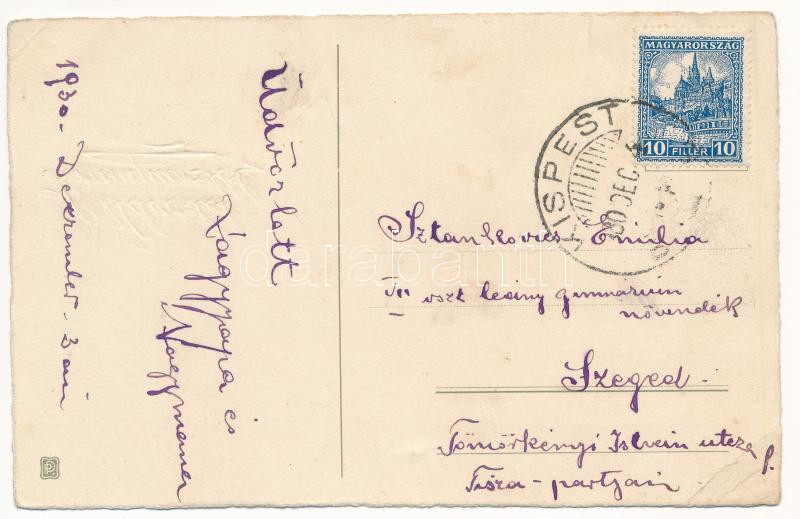 1930. Dezember 3 án
Üdvözlett
Nagypapa és
Nagymama
MAGYARORSZÁG
10 FILLÉR 10
KISPEST
30 DEC
Sztankovics Emilia
oszt leány gimnázium
növendék
Szeged.
Tömörkényi István utcza
Tisza-partján
darabanth